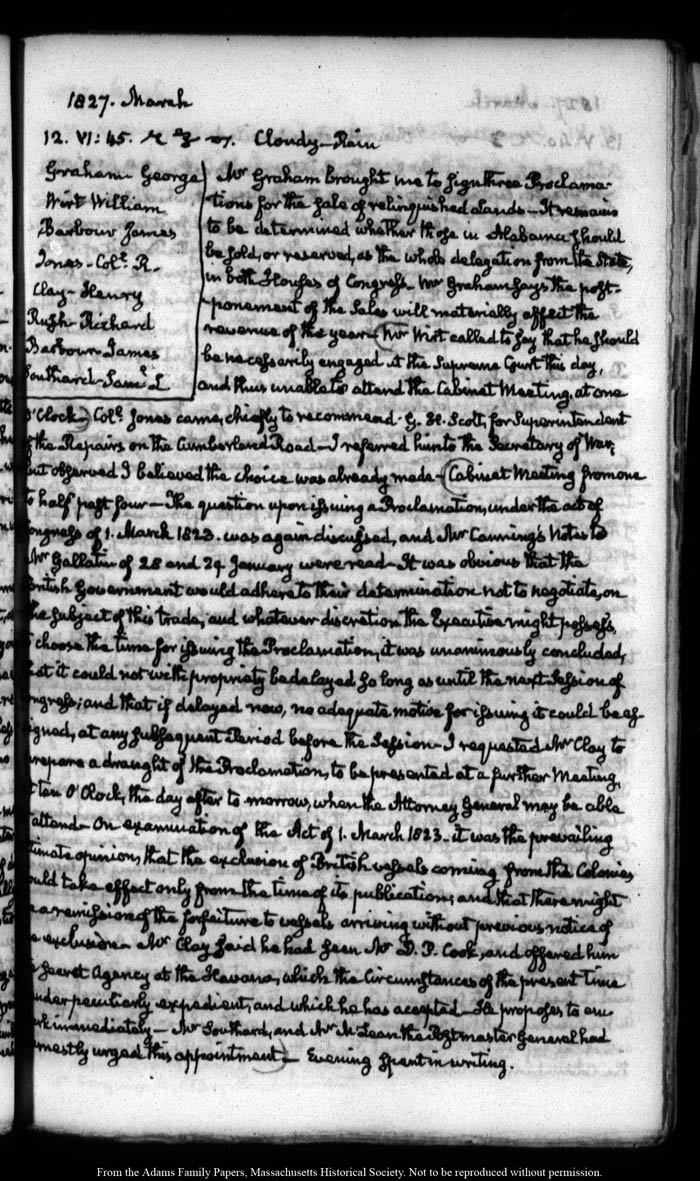 1827. March
12. VI: 45. Cloudy—Rain
Graham George
Wirt William
Barbour James
Jones—Colo. R.
Clay—Henry
Rush Richard
Barbour—James
Southard—Saml. L
Mr Graham brought me to sign three Proclama-
tions for the sale of relinquished Lands—It remains
to be determined whether those in Alabama should
be sold, or reserved, as the whole delegation from the State,
in both Houses of Congress. Mr Graham says the post-
ponement of the Sales will materially affect the
revenue of the year—Mr Wirt called to say that he should
be necessarily engaged at the Supreme Court this day,
and thus unable to attend the Cabinet Meeting, at one
O'Clock—Colo. Jones came, chiefly to recommend G. H. Scott, for Superintendent
of the Repairs on the Cumberland Road—I referred him to the Secretary of War;
but observed I believed the choice was already made—Cabinet Meeting from one
to half past four—The question upon issuing a Proclamation, under the act of
Congress of 1. March 1823. was again discussed, and Mr Canning's Notes to
Mr Gallatin of 28 and 29 January were read—It was obvious that the
British Government would adhere to their determination not to negotiate, on
the subject of this trade, and whatever discretion the Executive might possess,
choose the time for issuing the Proclamation, it was unanimously concluded,
that it could not with propriety be delayed so long as until the next Session of
Congress; and that if delayed now, no adequate motive for issuing it could be as-
signed, at any subsequent Period before the Session—I requested Mr Clay to
prepare a draught of the Proclamation, to be presented at a further Meeting,
ten O'Clock, the day after to morrow, when the Attorney General may be able
attend—On examination of the Act of 1. March 1823—it was the prevailing
opinion, that the exclusion of British vessels coming from the Colonies
would take effect only from the time of its publication; and that there might
be a remission of the forfeiture to vessels arriving without previous notice of
the exclusion—Mr Clay said he had seen Mr D. P. Cook, and offered him
Secret Agency at the Havana, which the Circumstances of the present time
render peculiarly expedient, and which he has accepted—He proposes to em-
bark immediately—Mr Southard, and Mr McLean the Postmaster General had
earnestly urged this appointment—Evening spent in writing.
From the Adams Family Papers, Massachusetts Historical Society. Not to be reproduced without permission.